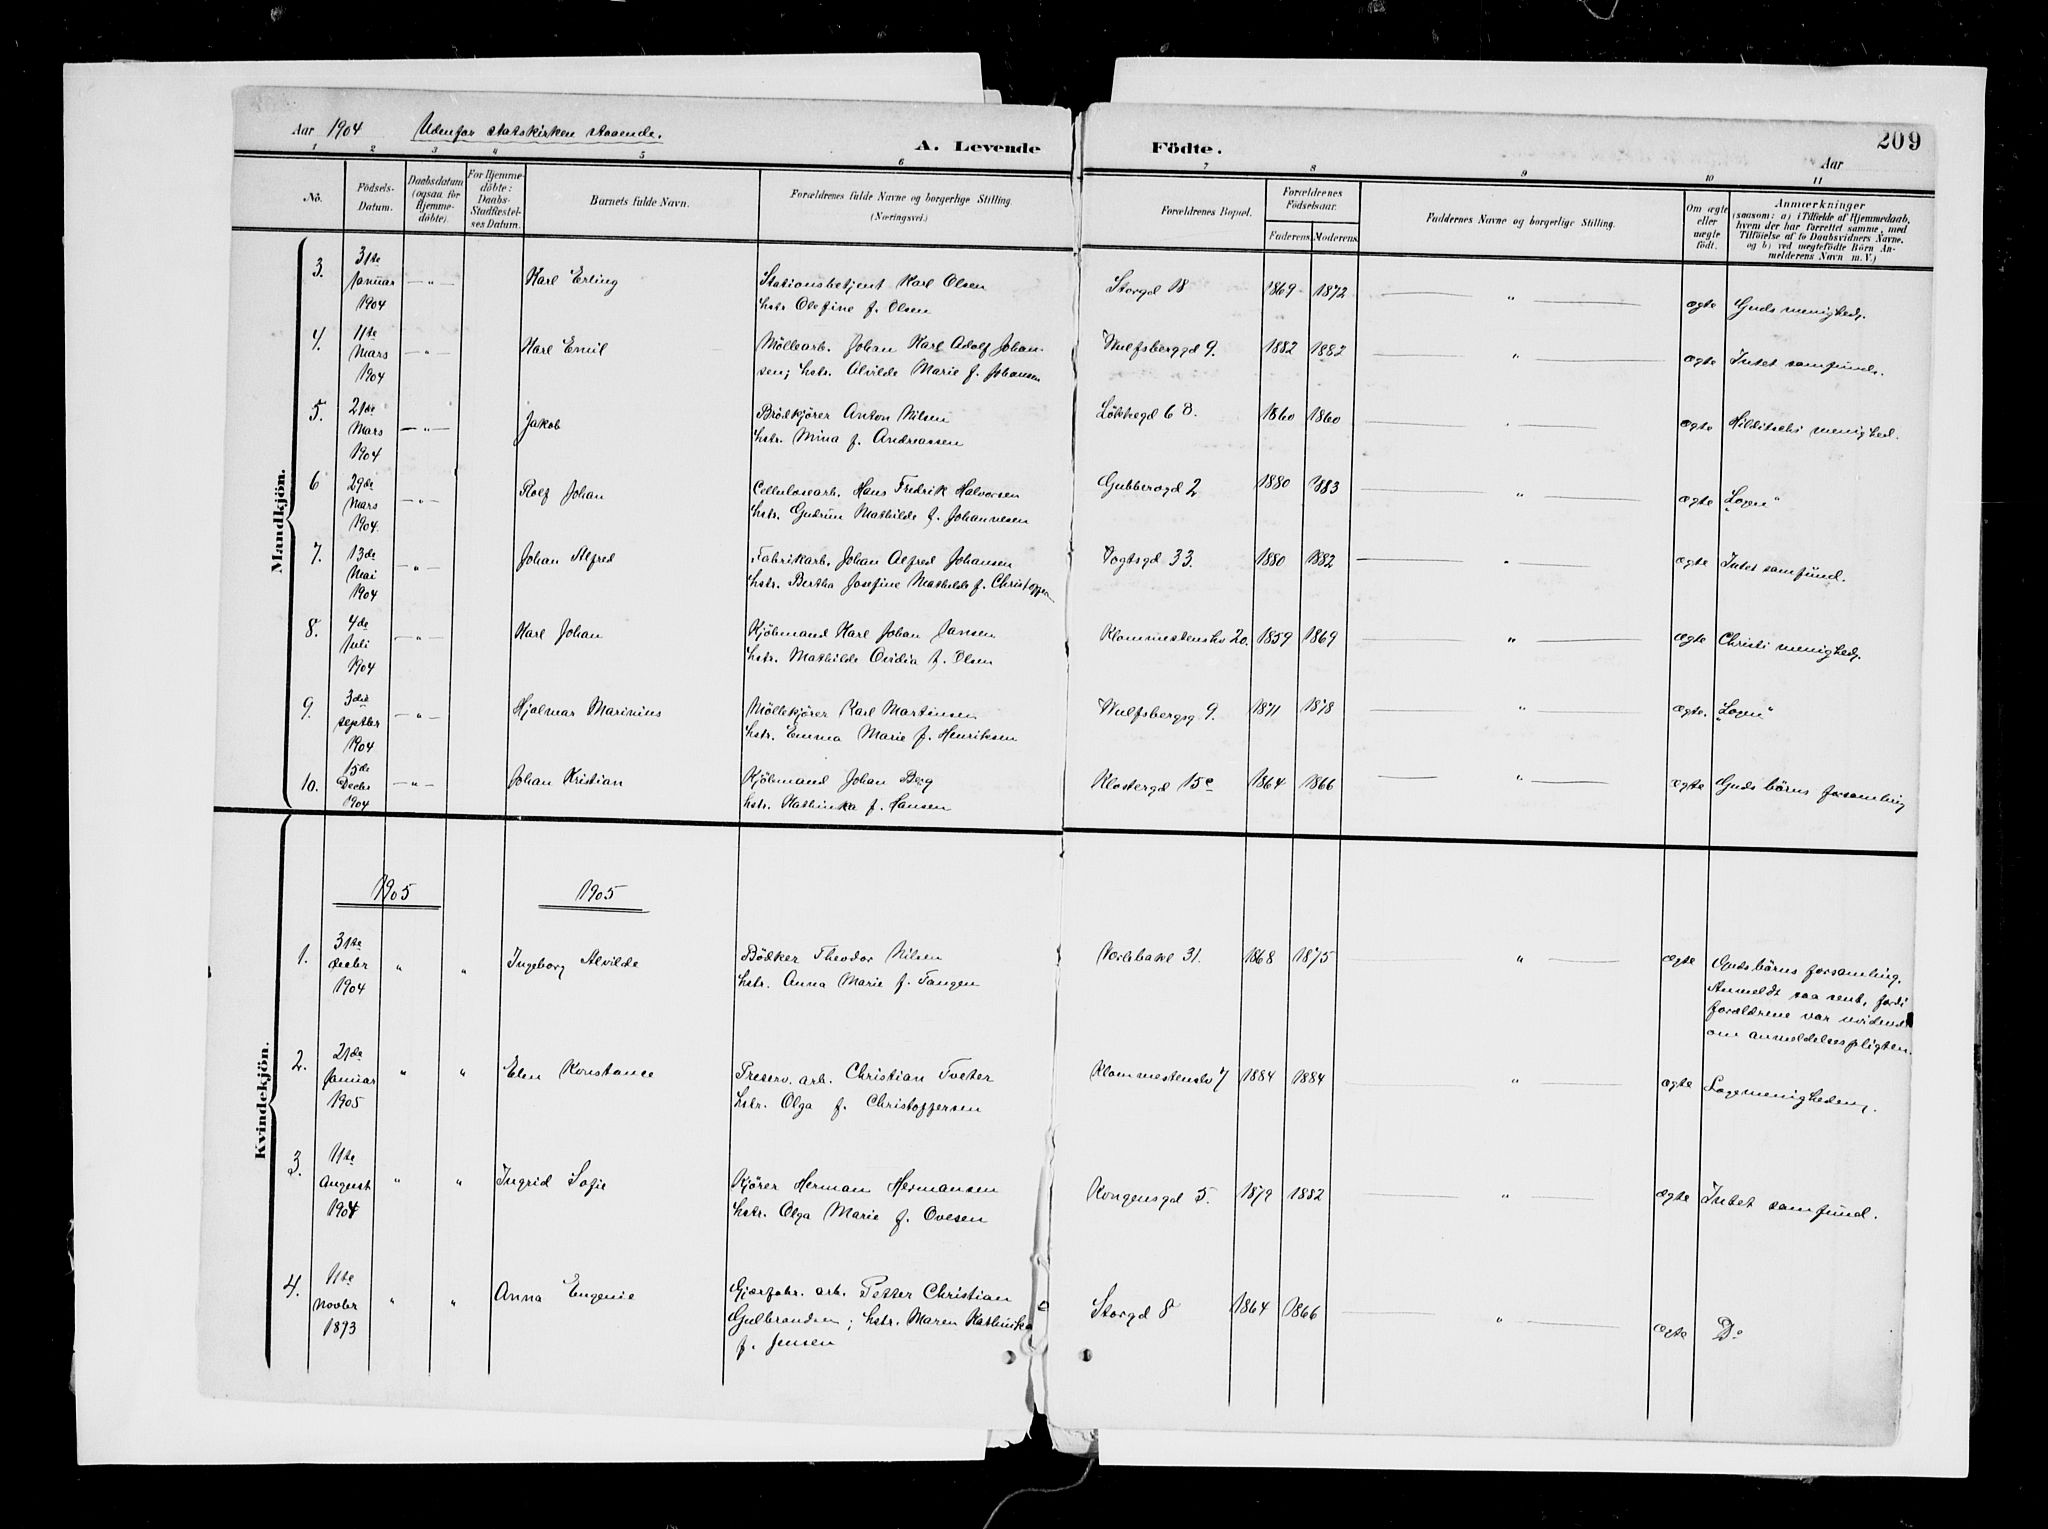 Aar 1904 Udenfor statskirken staaende.
A. Levende Födte.
209
Aar
1 2 3 4 5 6 7 8 9 10 11
No.
Födsels-Datum.
Daabsdatum (ogsaa for Hjemme-döbte).
For Hjemme-döbte: Daabs-Stadfæstel-ses Datum.
Barnets fulde Navn.
Forældrenes fulde Navne og borgerlige Stilling. (Næringsvei.)
Forældrenes Bopæl.
Forældrenes Födselsaar.
Faderens. Moderens.
Faddernes Navne og borgerlige Stilling.
Om ægte eller uægte födt.
Anmærkninger
(saasom: a) i Tilfælde af Hjemmedaab,
hvem der har forrettet samme, med
Tilföielse af to Daabsvidners Navne.
og b) ved uegtefödte Börn An-
melderens Navn m. V.)
Mandkjön.
3. 31te Januar 1904 — " — Karl Erling Stationsbetjent Karl Olsen
hstr. Olefine f. Olsen Storgd 18 1869 1872 " ægte Guds menighed.
4. 11te Mars 1904 — " — Karl Emil Möllearb. Johan Karl Adolf Johan-
sen; hstr. Alvilde Marie f. Johansen Wulfsberggd 9. 1882 1882 " ægte Intet samfund.
5. 21de Mars 1904 — " — Jakob Brödkjörer Anton Nilsen
hstr. Mina f. Andreassen Lökkegd 68. 1860 1860 " ægte menighed.
6 29de Mars 1904. — " — Rolf Johan Cellulosearb. Hans Fredrik Halvorsen
hstr. Gudrun Mathilde f. Johannesen Gubberogd 2 1880 1883 " ægte "Logen"
7. 13de Mai 1904 — " — Johan Alfred Fabrikarb. Johan Alfred Johansen
hstr. Bertha Josefine Mathilde f. Christoffersen Vogtsgd 33. 1880 1882 " ægte Intet samfund.
8. 4de Juli 1904 — " — Karl Johan Kjöbmand Karl Johan Jansen
hstr. Mathilde Ovidia f. Olsen 20. 1859 1869 " ægte Christi menighed.
9. 3die septbr 1904 — " — Hjalmar Marinius Möllekjörer Karl Martinsen
hstr. Emma Marie f. Henriksen Wulfsbergsg 9. 1871 1878 " ægte. "Logen"
10. 15de Decbr 1904 — " — Johan Kristian Kjöbmand Johan Berg
hstr. Kathinka f. Hansen Klostergd 15c 1864 1866 " ægte Guds börns forsamling
Kvindekjön.
1905 1905
1. 31te decbr 1904 " " Ingeborg Alvilde Bödker Theodor Nilsen
hstr. Anna Marie f. Tangen 31. 1868 1875 " ægte Guds börns forsamling.
Anmeldt saa sent, fordi
forældrene var uvidende
om anmeldelsespligten.
2. 21de Januar 1905 " " Elen Konstance Preserv. arb. Christian Tveter
hstr. Olga f. Christoffersen 7 1884 1884 " ægte Logemenigheden.
3. 11te August 1904 " " Ingrid Sofie Kjörer Herman Hermansen
hstr. Olga Marie f. Ovesen Kongensgd 5. 1879 1882 " ægte Intet samfund.
4. 11te Novbr 1893 " " Anna Eugenie Gjærfabr. arb. Petter Christian
Gulbrandsen; hstr. Maren Kathinka
f. Jensen Storgd 8 1864 1866 " ægte Do